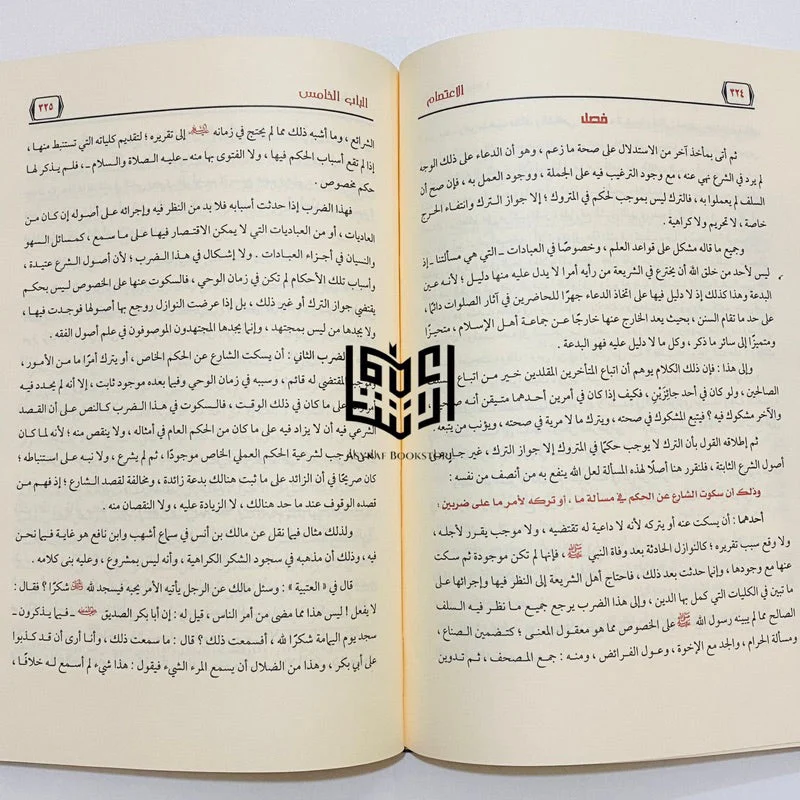 ٣٢٤
الاعتصام
فصل
ثم أتى بمأخذ آخر من الاستدلال على صحة ما زعم ، وهو أن الدعاء على ذلك الوجه
لم يرد في الشرع نهي عنه ، مع وجود الترغيب فيه على الجملة ، ووجود العمل به ، فإن صح أن
السلف لم يعملوا به ، فالترك ليس بموجب لحكم في المتروك ؛ إلا جواز الترك وانتفاء الحرج
خاصة ، لا تحريم ولا كراهية .
وجميع ما قاله مشكل على قواعد العلم ، وخصوصًا في العبادات ـ التي هي مسألتنا ـ إذ
ليس لأحد من خلق الله أن يخترع في الشريعة من رأيه أمرا لا يدل عليه منها دليل ؛ لأنه عين
البدعة وهذا كذلك إذ لا دليل فيها على اتخاذ الدعاء جهرًا للحاضرين في آثار الصلوات دائمًا ،
على حد ما تقام السنن ، بحيث يعد الخارج عنها خارجًا عن جماعة أهل الإسلام ، متحيزًا
ومتميزًا إلى سائر ما ذكر ، وكل ما لا دليل عليه فهو البدعة .
وإلى هذا : فإن ذلك الكلام يوهم أن اتباع المتأخرين المقلدين خير من اتباع السلف
الصالحين ، ولو كان في أحد جائزَيْنِ ، فكيف إذا كان في أمرين أحدهما متيقن أنه صحيح ،
والآخر مشكوك فيه ؟ فيتبع المشكوك في صحته ، ويترك ما لا مرية في صحته ، ويؤنب من يتبعه .
ثم إطلاقه القول بأن الترك لا يوجب حكمًا في المتروك إلا جواز الترك ، غير جار على
أصول الشرع الثابتة ، فلنقرر هنا أصلًا لهذه المسألة لعل الله ينفع به من أنصف من نفسه :
وذلك أن سكوت الشارع عن الحكم في مسألة ما ، أو تركه لأمر ما على ضربين :
أحدهما : أن يسكت عنه أو يتركه لأنه لا داعية له تقتضيه ، ولا موجب يقرر لأجله ،
ولا وقع سبب تقريره ؛ كالنوازل الحادثة بعد وفاة النبي ﷺ ، فإنها لم تكن موجودة ثم سكت
عنها مع وجودها ، وإنما حدثت بعد ذلك ، فاحتاج أهل الشريعة إلى النظر فيها وإجرائها على
ما تبين في الكليات التي كمل بها الدين ، وإلى هذا الضرب يرجع جميع ما نظر فيه السلف
الصالح مما لم يبينه رسول الله ﷺ على الخصوص مما هو معقول المعنى ؛ كتضمين الصناع ،
ومسألة الحرام ، والجد مع الإخوة ، وعول الفرائض ، ومنه : جمع المصحف ، ثم تدوين
الباب الخامس
٣٢٥
الشرائع ، وما أشبه ذلك مما لم يحتج في زمانه ﷺ إلى تقريره ؛ لتقديم كلياته التي تستنبط منها ،
إذا لم تقع أسباب الحكم فيها ، ولا الفتوى بها منه ـ عليه الصلاة والسلام ـ ، فلم يذكر لها
حكم مخصوص .
فهذا الضرب إذا حدثت أسبابه فلا بد من النظر فيه وإجرائه على أصوله إن كان من
العاديات ، أو من العباديات التي لا يمكن الاقتصار فيها على ما سمع ، كمسائل السهو
والنسيان في أجزاء العبادات . ولا إشكال في هذا الضرب ؛ لأن أصول الشرع عتيدة ،
وأسباب تلك الأحكام لم تكن في زمان الوحي ، فالسكوت عنها على الخصوص ليس بحكم
يقتضي جواز الترك أو غير ذلك ، بل إذا عرضت النوازل روجع بها أصولها فوجدت فيها ،
ولا يجدها من ليس بمجتهد ، وإنما يجدها المجتهدون الموصوفون في علم أصول الفقه .
الضرب الثاني : أن يسكت الشارع عن الحكم الخاص ، أو يترك أمرًا ما من الأمور ،
وموجبه المقتضي له قائم ، وسببه في زمان الوحي وفيما بعده موجود ثابت ، إلا أنه لم يحدد فيه
أمر زائد على ما كان في ذلك الوقت ، فالسكوت في هذا الضرب كالنص على أن القصد
الشرعي فيه أن لا يزاد فيه على ما كان من الحكم العام في أمثاله ، ولا ينقص منه ؛ لأنه لما كان
الموجب لشرعية الحكم العملي الخاص موجودًا ، ثم لم يشرع ، ولا نبه على استنباطه ؛
كان صريحًا في أن الزائد على ما ثبت هنالك بدعة زائدة ، ومخالفة لقصد الشارع ؛ إذ فهم من
قصده الوقوف عند ما حد هنالك ، لا الزيادة عليه ، ولا النقصان منه .
ولذلك مثال فيما نقل عن مالك بن أنس في سماع أشهب وابن نافع هو غاية فيما نحن
فيه ، وذلك أن مذهبه في سجود الشكر الكراهية ، وأنه ليس بمشروع ، وعليه بنى كلامه .
قال في « العتبية » : وسئل مالك عن الرجل يأتيه الأمر يحبه فيسجد لله شكرًا ؟ فقال :
لا يفعل ! ليس هذا مما مضى من أمر الناس ، قيل له : إن أبا بكر الصديق ـ فيما يذكرون ـ
سجد يوم اليمامة شكرًا لله ، أفسمعت ذلك ؟ قال : ما سمعت ذلك ، وأنا أرى أن قد كذبوا
على أبي بكر ، وهذا من الضلال أن يسمع المرء الشيء فيقول : هذا شيء لم أسمع له خلافًا ،
AKYNAF BOOKSTORE